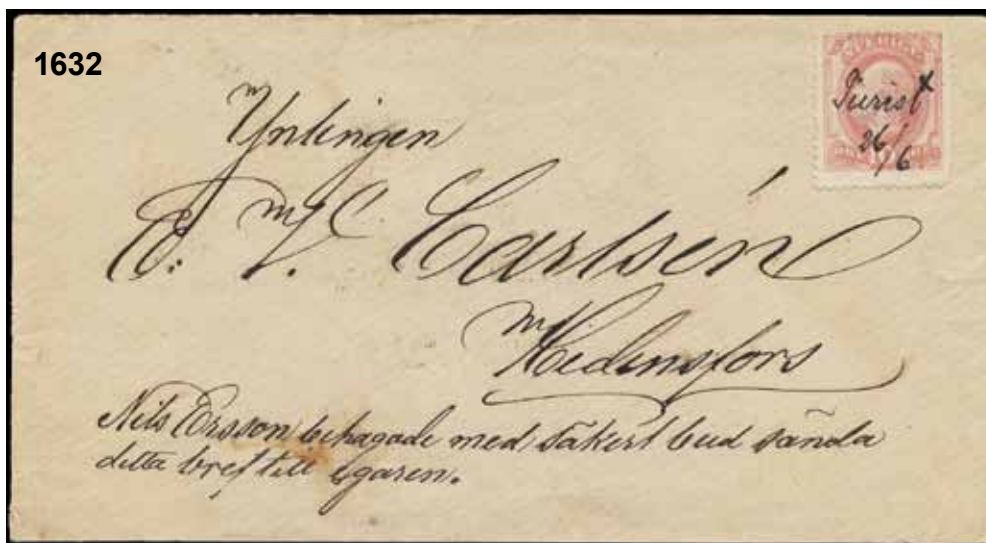 1632
Turist x
26/6
Ynlingen
E. V. Carlsén
Hedensfors
Nils Ersson behagade med säkert bud sända
detta bref till egaren.